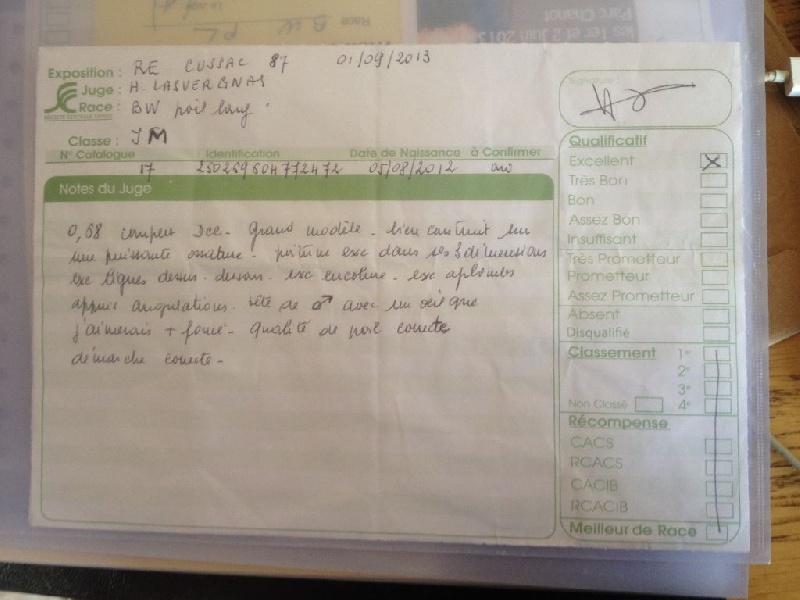 Race
PL
Parc Chanot
les 1er et 2 Juin 2013
Exposition : RE CUSSAC 87 01/09/2013
Juge : H. LASVERGNAS
Race : BW poil long
Classe : JM
N° Catalogue Identification Date de Naissance à Confirmer
17 250269604772472 05/08/2012
Notes du Juge
0,68 compect Dcc - Grand modèle - bien construit sur
une puissante ossature - poitrine exc dans ses 3 dimensions
exc lignes dessus - dessous - exc encolure - exc aplombs
angulations - tête de ♂ avec un œil que
j'aimerais + foncé - Qualité de poil correcte
démarche correcte -
Signature
Qualificatif
Excellent X
Très Bon
Bon
Assez Bon
Insuffisant
Très Prometteur
Prometteur
Assez Prometteur
Absent
Disqualifié
Classement 1er
2e
3e
Non Classé 4e
Récompense
CACS
RCACS
CACIB
RCACIB
Meilleur de Race